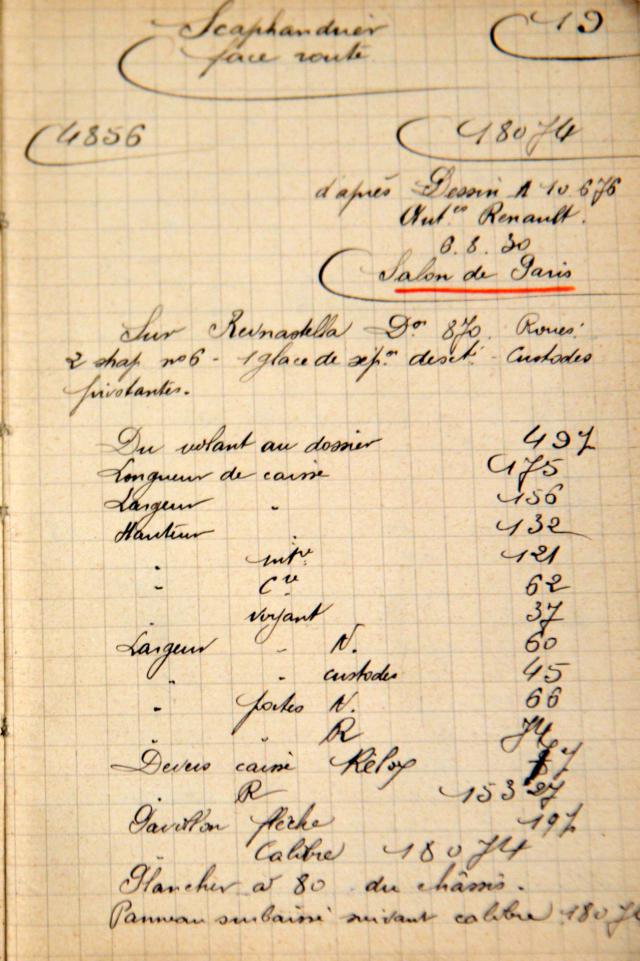 Scaphandrier 19
face route
4856 18074
d'après Dessin A 10 676
Aut.es Renault.
6.8.30
Salon de Paris
Sur Reinastella Don 870. Roues
2 shap nº6 - 1 glace de sépon desct - Custodes
pivotantes.
Du volant au dossier 497
Longueur de caisse 175
Largeur " 156
Hauteur " 132
" intre 121
" Cve 62
" voyant 37
Largeur " N. 60
" " custodes 45
" portes N. 66
" " R 74
Devers caisse
" R 153 27
Pavillon flèche 197
" Calibre 18074
Plancher à 80 du châssis.
Panneau surbaissé suivant calibre 1807